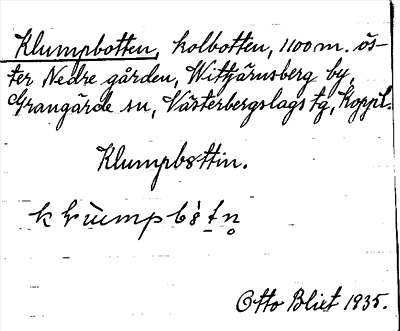 Klumpbotten, kolbotten, 1100 m. ös-
ter Nedre gården, Wittjärnsberg by,
Grangärde sn, Västerbergslags tg, Koppbl.
Klumpbottin.
Otto Blixt 1935.